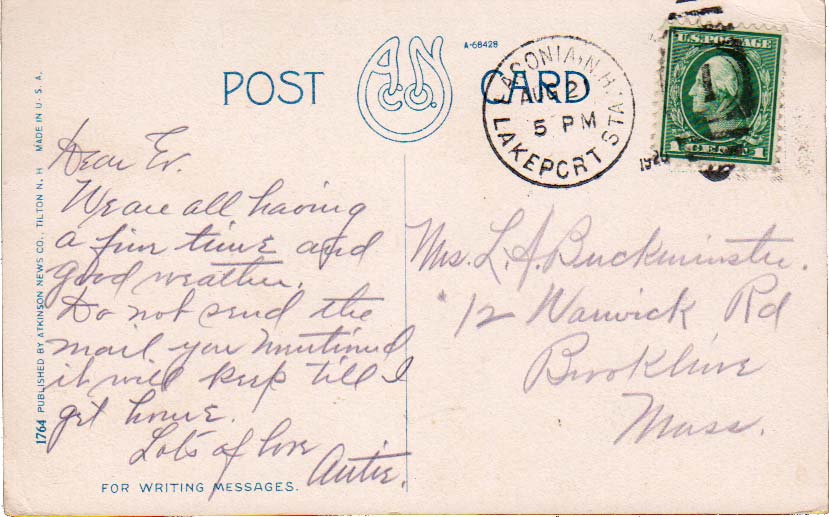 POST CARD
A.N. Co.
A-68428
LACONIA, N.H.
AUG 2
5 PM
LAKEPORT STA.
1920
U.S. POSTAGE
1 CENT 1
Dear Ev.
We are all having
a fine time and
good weather.
Do not send the
mail you mentioned
it will keep till I
get home.
Lots of love
Autie.
Mrs. L. A. Buckminster.
12 Warwick Rd
Brookline
Mass.
1764 PUBLISHED BY ATKINSON NEWS CO., TILTON N. H MADE IN U. S. A.
FOR WRITING MESSAGES.